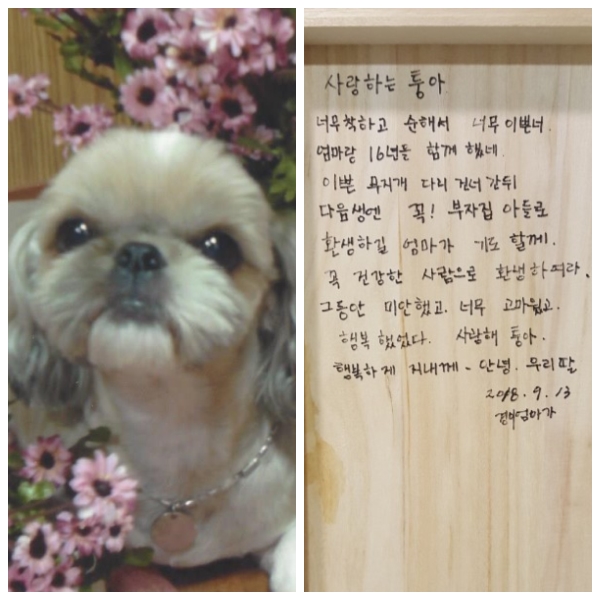 사랑하는 퉁아
너무 착하고 순해서 너무 이쁜 너.
엄마랑 16년을 함께 했네.
이쁜 무지개 다리 건너 간 뒤
다음생엔 꼭! 부자집 아들로
환생하길 엄마가 기도 할께.
꼭 건강한 사람으로 환생하여라.
그동안 미안했고. 너무 고마웠고.
행복했었다. 사랑해 퉁아.
행복하게 지내께~ 안녕. 우리딸
2018. 9. 13
엄마가